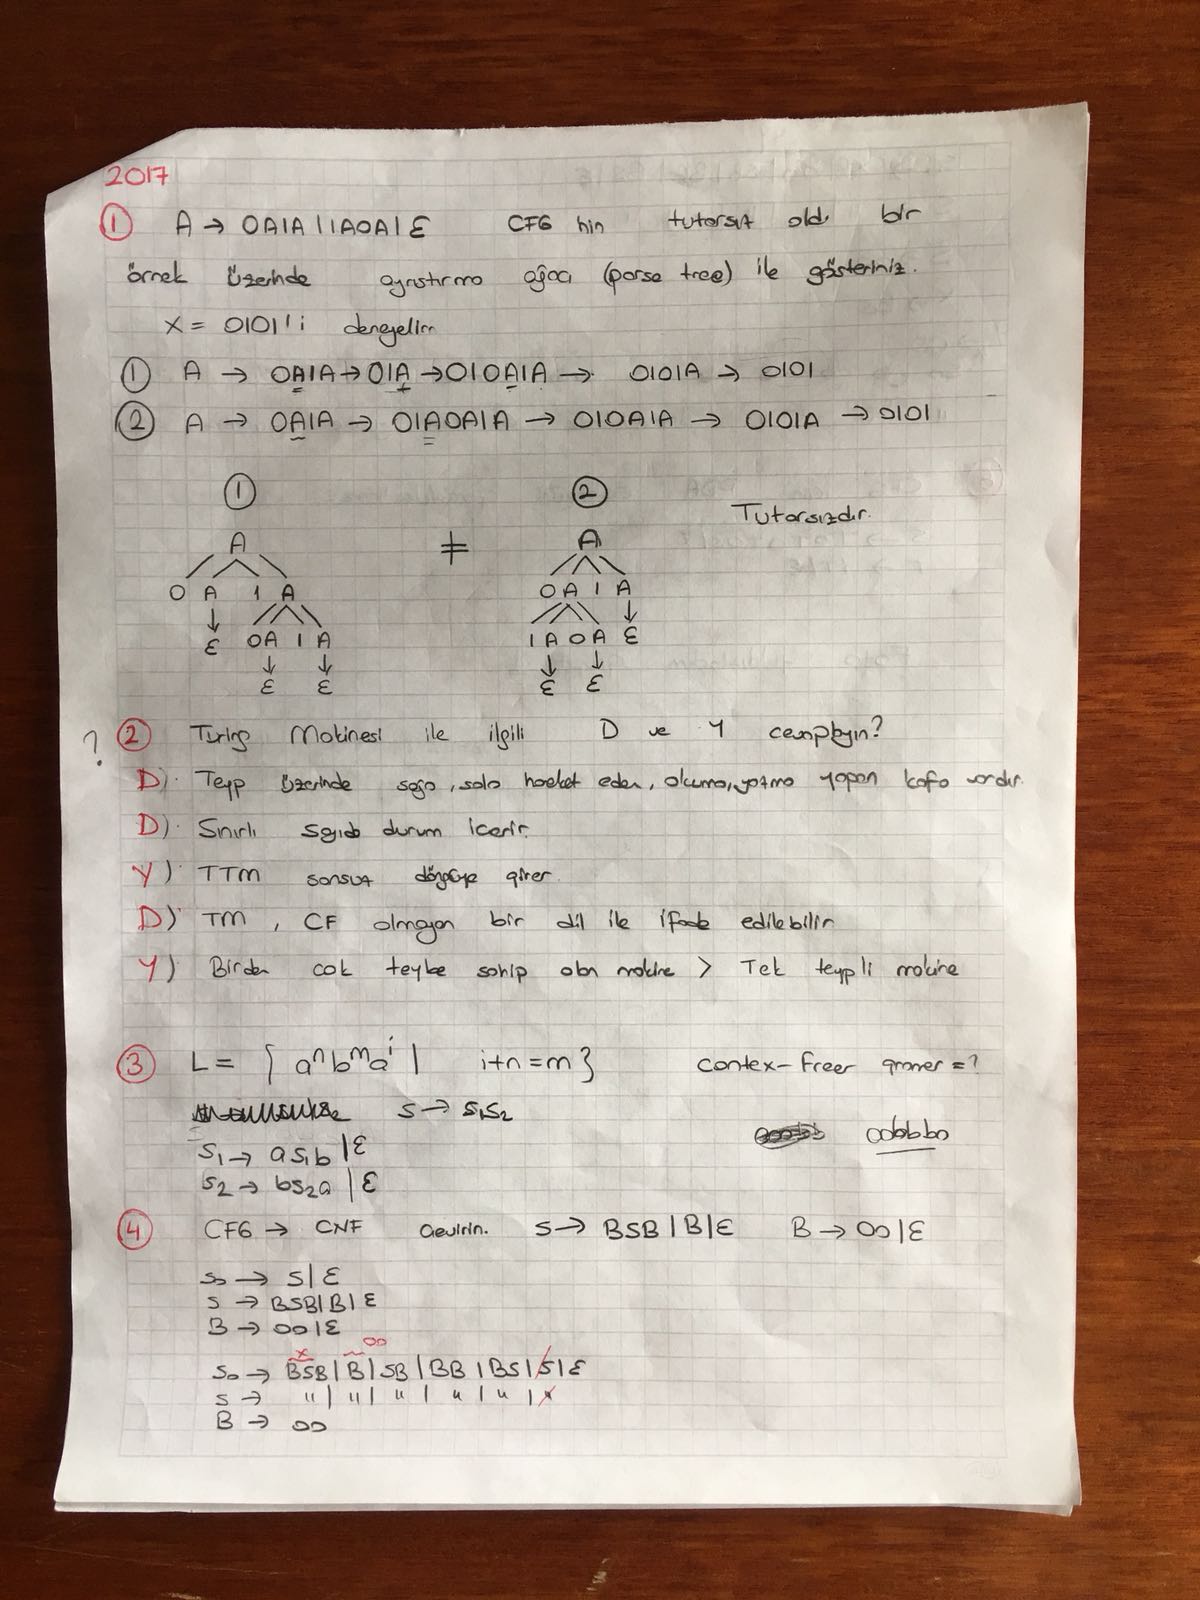 2017
① A → 0A1A | 1A0A | ε CFG nin tutarsız old. bir
örnek üzerinde ayrıştırma ağacı (parse tree) ile gösteriniz.
X = 0101'i deneyelim
① A → 0A1A → 01A → 010A1A → 0101A → 0101
② A → 0A1A → 01A0A1A → 010A1A → 0101A → 0101
① ②
Tutarsızdır.
A ≠ A
0 A 1 A 0 A 1 A
ε 0A 1 A 1 A 0 A ε
ε ε ε ε
? ② Turing Makinesi ile ilgili D ve Y cevaplayın?
D) Teyp üzerinde sağa, sola hareket eden, okuma, yazma yapan kafa vardır.
D) Sınırlı sayıda durum içerir.
Y) TTM sonsuz döngüye girer.
D) TM, CF olmayan bir dil ile ifade edilebilir
Y) Birden çok teybe sahip olan makine > Tek teypli makine
③ L = { aⁿbᵐaⁱ | i+n=m } contex-freer gramer = ?
S → S₁S₂
S₁ → aS₁b | ε aabbba
S₂ → bS₂a | ε
④ CFG → CNF Çevirin. S → BSB | B | ε B → 00 | ε
S₀ → S | ε
S → BSB | B | ε
B → 00 | ε
x 00
S₀ → BSB | B | SB | BB | BS | S | ε
S → " | " | " | " | " |
B → 00